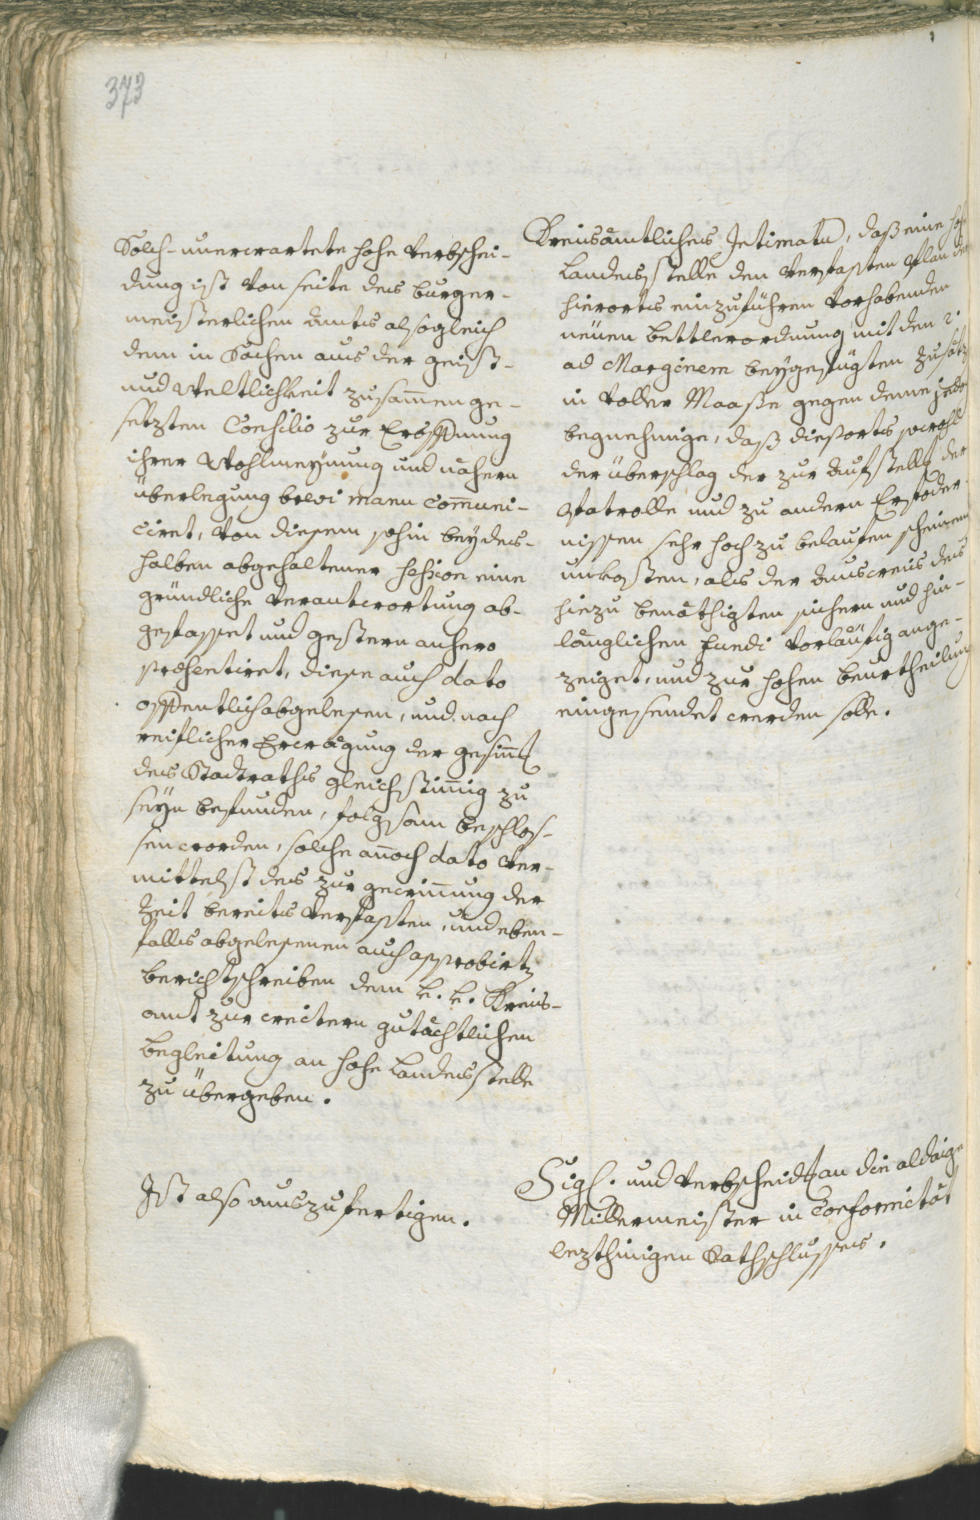 373
Solch-unerwartete hohe Verbschei-
dung ist von seite des burger-
meisterlichen Amts alsogleich
dem in Sachen aus der geist-
und Weltlichkeit zusam̄en ge-
setzten Consilio zur Eröffnung
ihrer Wohlmeynung und nähern
überlegung brevi manu com̄uni-
ciret, von diesem sohin beydes-
halben abgehaltener Session eine
gründliche Verantwortung ab-
gefasset und gestern anhero
præsentiret, diese auch dato
offentlich abgelesen, und nach
reiflicher Erwägung der gesin̄t
des Stadtraths gleichstim̄ig zu
seyn befunden, folgsam beschlos-
sen worden, solche an̄och dato ver-
mittelst des zur gewin̄ung der
Zeit bereits verfasten, und eben-
falls abgelesenen auch approbirten
berichtschreiben dem k. k. Kreis-
amt zur weitern gutächtlichen
begleitung an hohe Landesstelle
zu übergeben.
Ist also auszufertigen.
Kreisämtliches Intimatum, daß eine hohe
Landesstelle den verfasten Plan der
hierorts einzuführen vorhabenden
neüen bettlerordnung mit den 2.
ad Marginem beygefügten Zusätz
in voller Maaße gegen deme jedoch
begnehmige, daß diesorts sowohl
der überschlag der zur Aufstellung der
Patrolle und zu andern Erfoder-
nissen sehr hoch zu belaufen scheinenden
unkosten, als der Ausweis des
hiezu benöthigten sichern und hin-
länglichen Fundi vorläufig ange-
zeiget, und zur hohen beurtheilung
eingesendet werden solle.
Sigl. und Verbscheidt an die aldaige
Müllermeister in Conformität
lezthinigen Rathschlusses.